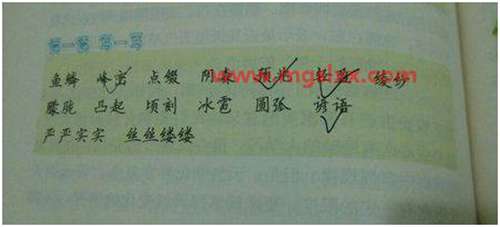 读一读 写一写
鱼鳞 峰峦 点缀 阴森 预兆 轻盈 绫纱
朦胧 凸起 顷刻 冰雹 圆弧 谚语
严严实实 丝丝缕缕